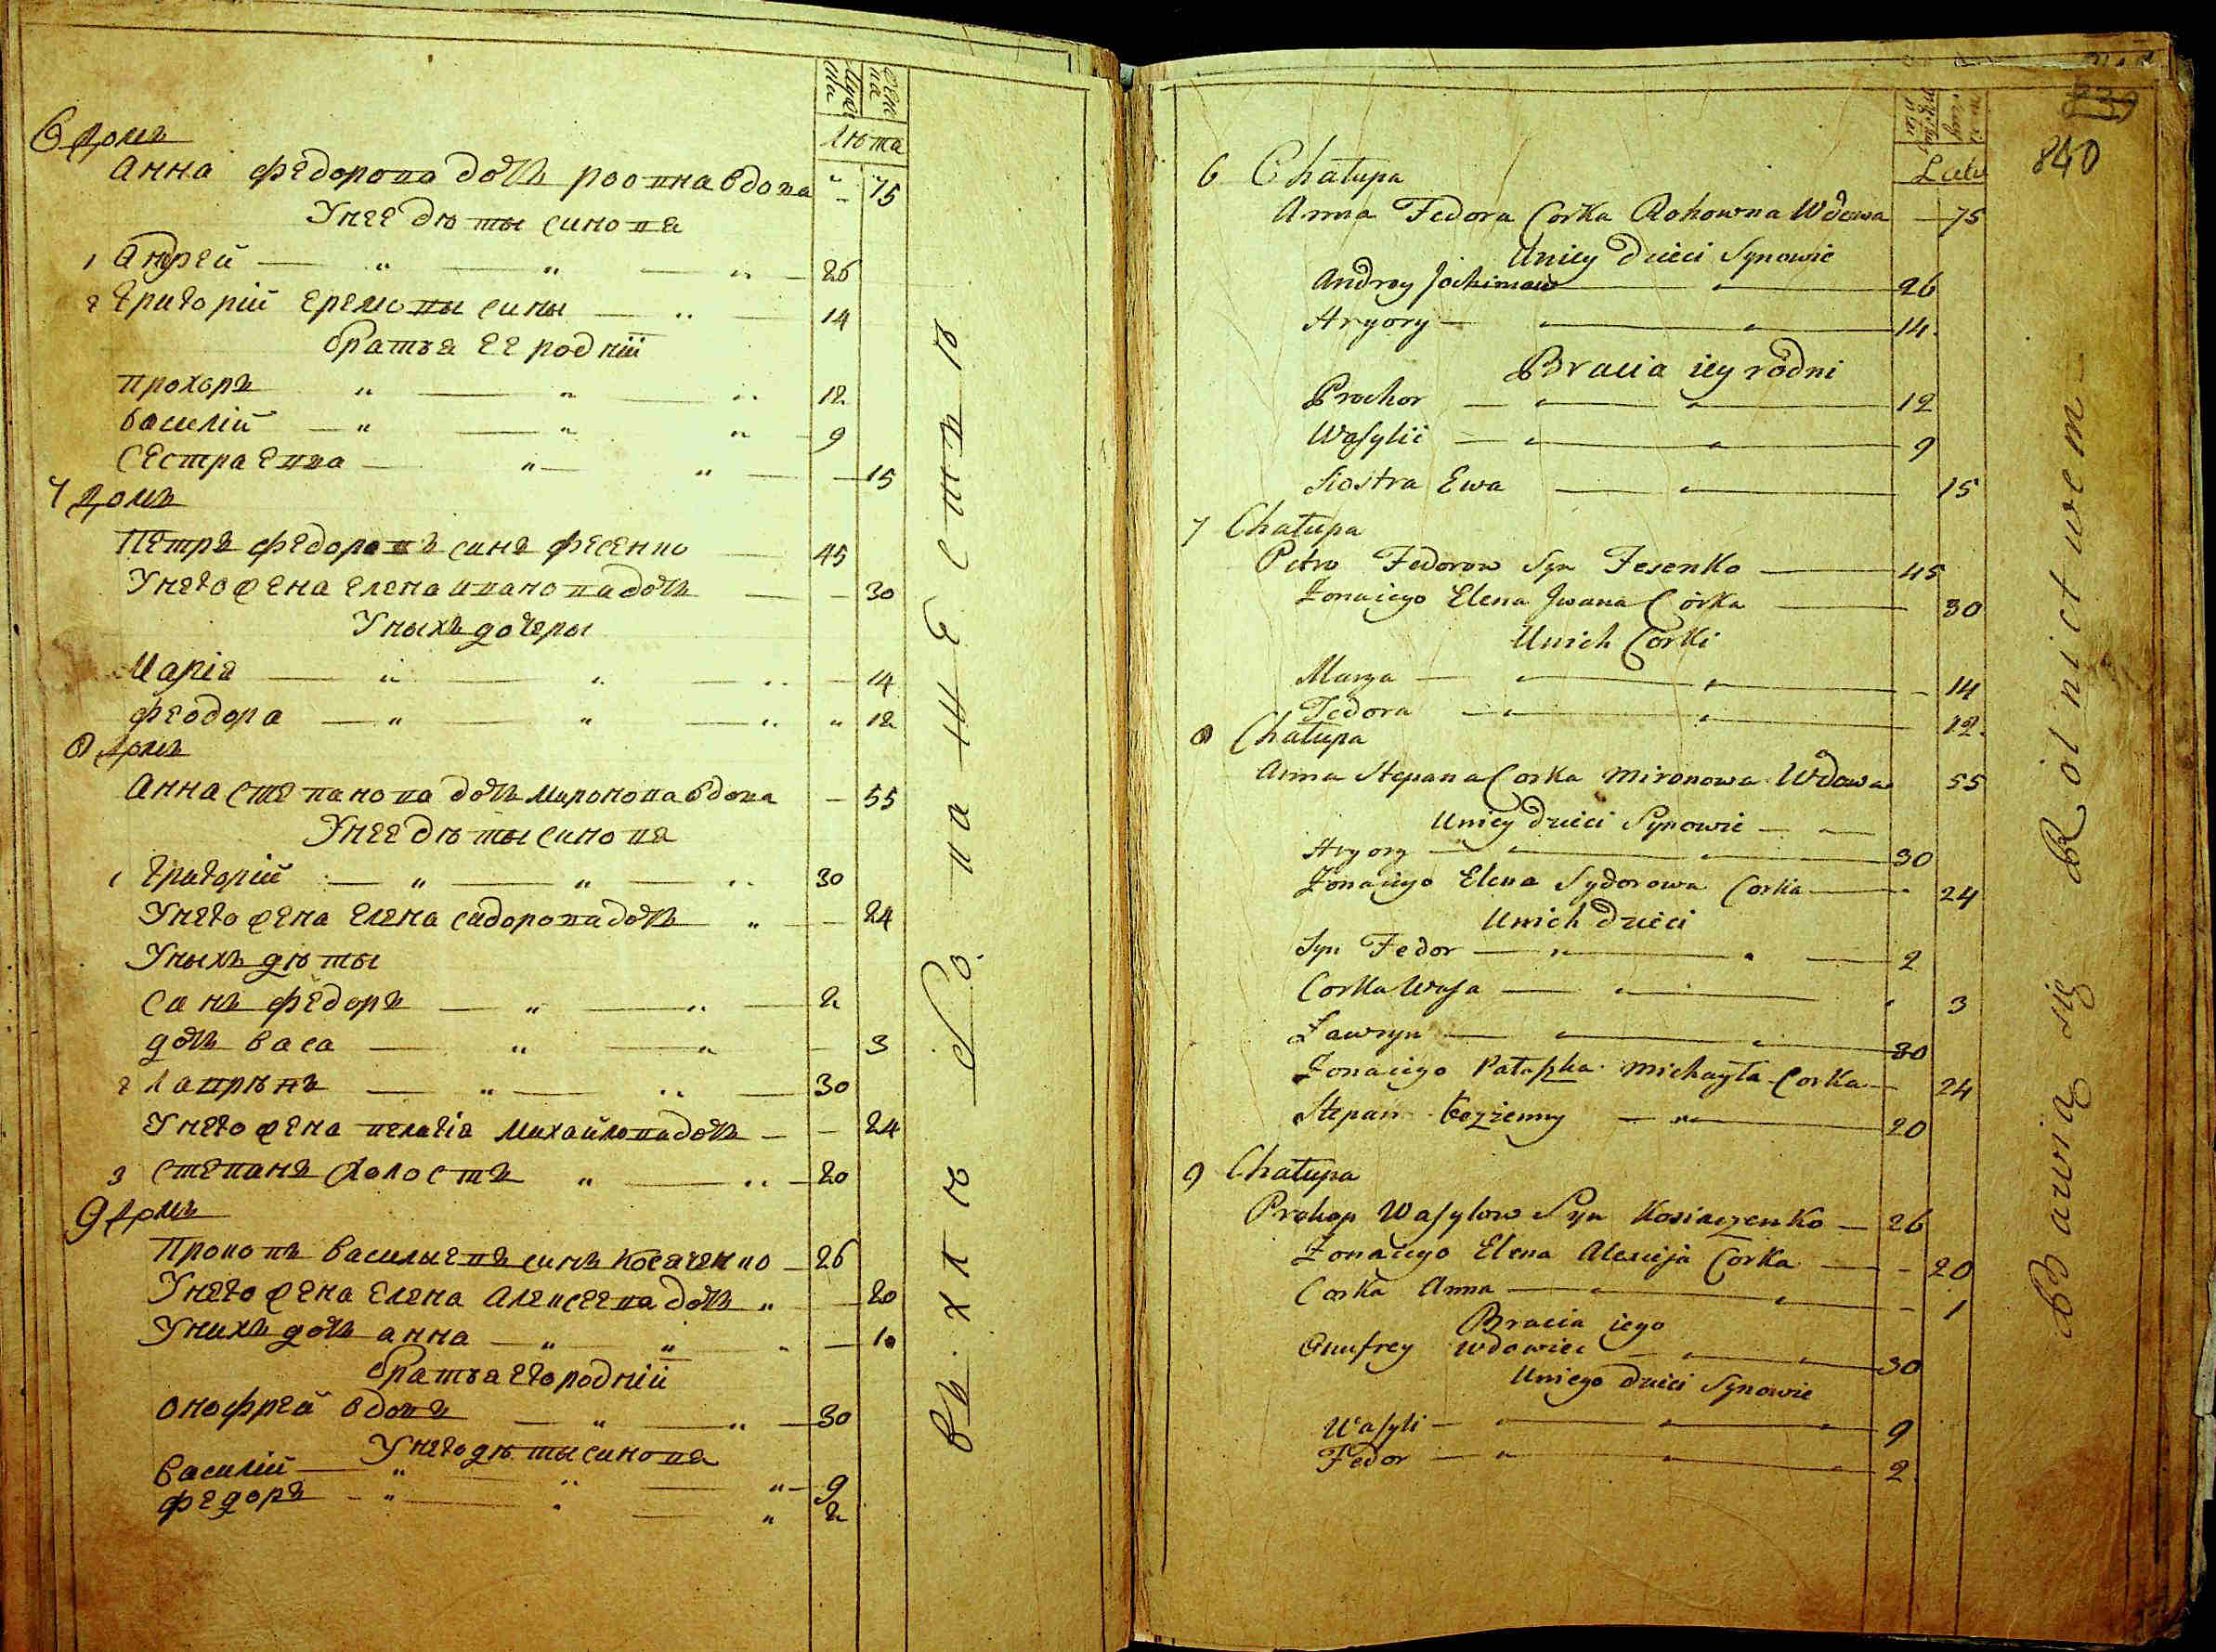 Мужеска
Женска
Лѣта
6 Домъ
Анна Федорова дочь вдова 75
У нее дѣты синова
1 Андрей 26
2 Григорий сины 14
братья ее родний
Прохоръ 12
Василий 9
Сестра Евва 15
7 Домъ
Петръ Федоровъ синъ Фесенко 45
У него жена Елена Иванова дочь 30
У ныхъ дочеры
Марія 14
Феодора 12
8 Домъ
Анна Степанова дочь Миронова вдова 55
У нее дѣты синова
1 Григорий 30
У него жена Елена Сидорова дочь 24
У ныхъ дѣты
Синъ Федоръ 2
дочь Васа 3
2 Лаврѣнъ 30
У него жена Пелагія Михайлова дочь 24
3 Степанъ Холостъ 20
9 Домъ
Прокопъ Васильевъ синъ Косяченко 26
У него жена Елена Алексеева дочь 20
У нихъ дочь Анна 1
братья его родний
Онофрей вдовъ 30
У него дѣты синова
Василий 9
Федоръ 2
840
Lata
6 Chałupa
Anna Fedora Corka Rohowna Wdowa 75
Uniey dzieci Synowie
Andrey Jochimow 26
Hryory 14
Bracia iey rodni
Prochor 12
Wasylii 9
Siostra Ewa 15
7 Chałupa
Petro Fedorow Syn Fesenko 45
Zonaiego Elena Jwana Córka 30
Unich Corki
Marya 14
Fedora 12
8 Chałupa
Anna Stepana Corka Mironowa Wdowa 55
Uniey dzieci Synowie
Hryory 30
Zonaiego Elena Sydorowa Corka 24
Unich dzieci
Syn Fedor 2
Corka Wasa 3
Ławryn 30
Zonaiego Michayła Corka 24
Stepan 20
9 Chałupa
Prokop Wasylow Syn Kosiaczenko 26
Zonaiego Elena Alexieja Corka 20
Corka Anna 1
Bracia iego
Onufrey wdowiec 30
Uniego dzieci Synowie
Wasyli 9
Fedor 2
Bawią się Rolnictwem